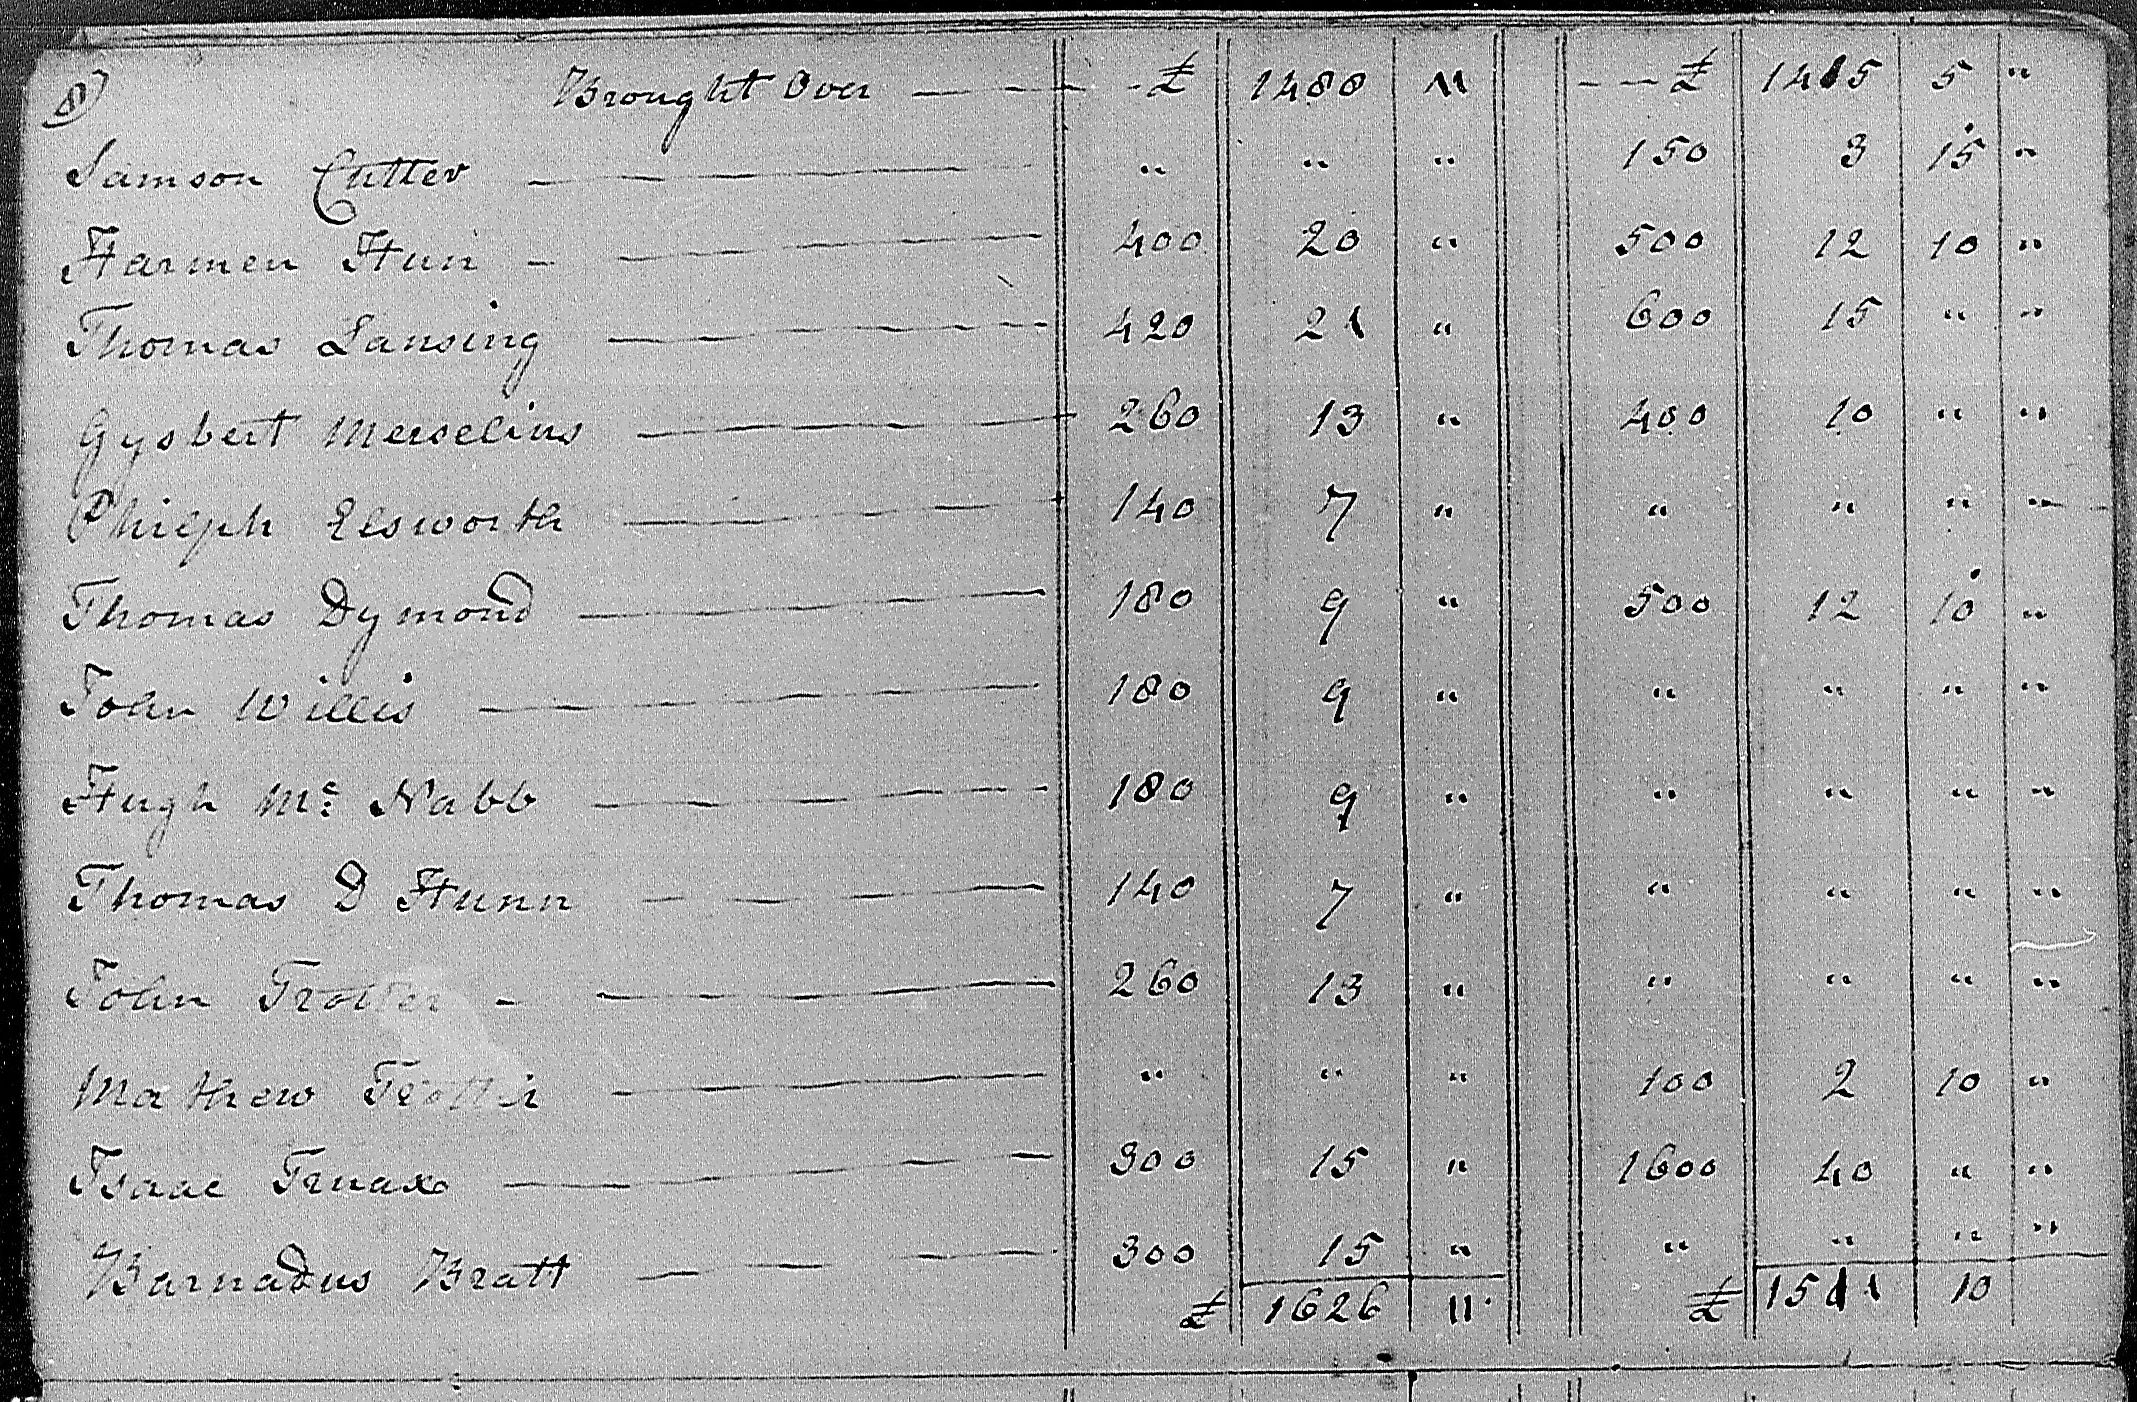 8) Brought Over — — — £ 1488 " — — £ 1415 5 "
Samson Cutter — " " " 150 3 15 "
Harmen Hun — 400 20 " 500 12 10 "
Thomas Lansing — 420 21 " 600 15 " "
Gysbert Merselius — 260 13 " 400 10 " "
Philyph Elsworth — 140 7 " " " " "
Thomas Dymond — 180 9 " 500 12 10 "
John Willis — 180 9 " " " " "
Hugh Mc: Nabb — 180 9 " " " " "
Thomas D Hunn — 140 7 " " " " "
John Trotter — 260 13 " " " " "
Mathew Trotter — " " " 100 2 10 "
Isaac Truax — 300 15 " 1600 40 " "
Barnadus Bratt — 300 15 " " " " "
£ 1626 " £ 1511 10